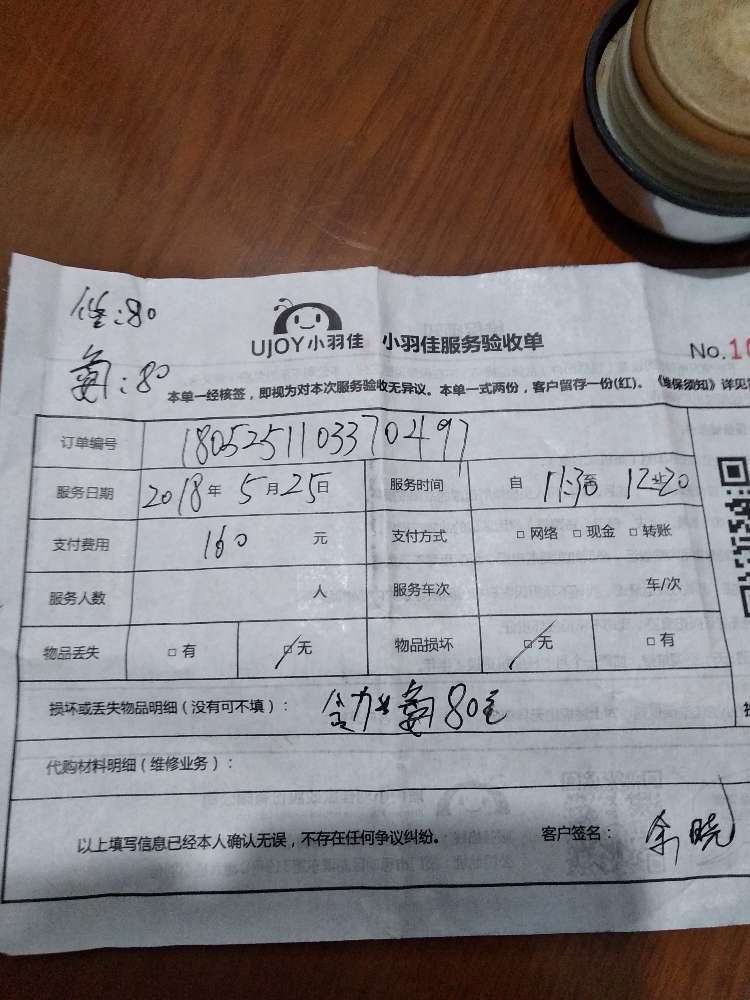 修:80
氟:80
UJOY小羽佳 小羽佳服务验收单
No.10
本单一经核签，即视为对本次服务验收无异议。本单一式两份，客户留存一份(红)。《维保须知》详见
订单编号 1805251103370497
服务日期 2018年5月25日 服务时间 自 11:30至 12:20
支付费用 160 元 支付方式 □ 网络 □ 现金 □ 转账
服务人数 人 服务车次 车/次
物品丢失 □ 有 □ 无 物品损坏 □ 无 □ 有
损坏或丢失物品明细（没有可不填）： 加氟80元
代购材料明细（维修业务）：
以上填写信息已经本人确认无误，不存在任何争议纠纷。 客户签名： 余晓